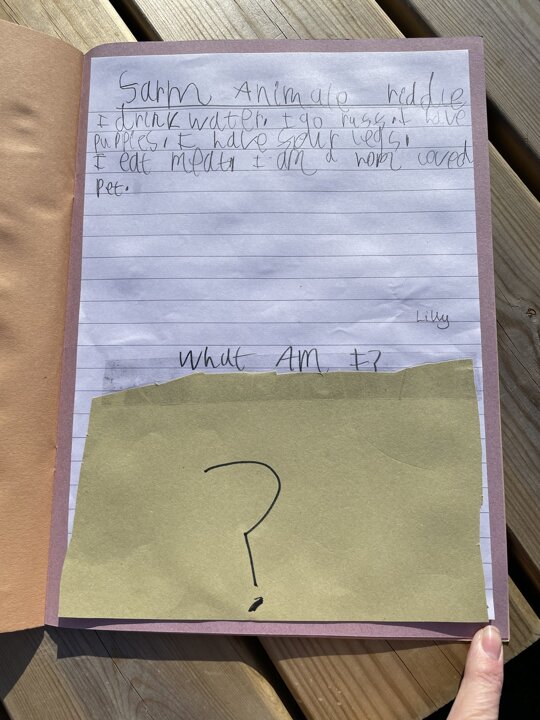 Sarm Animals riddle
I drink water. I go russ. I have
puppies. I have sour legs.
I eat meat. I am a worm coved
pet.
Lilly
What AM I?
?